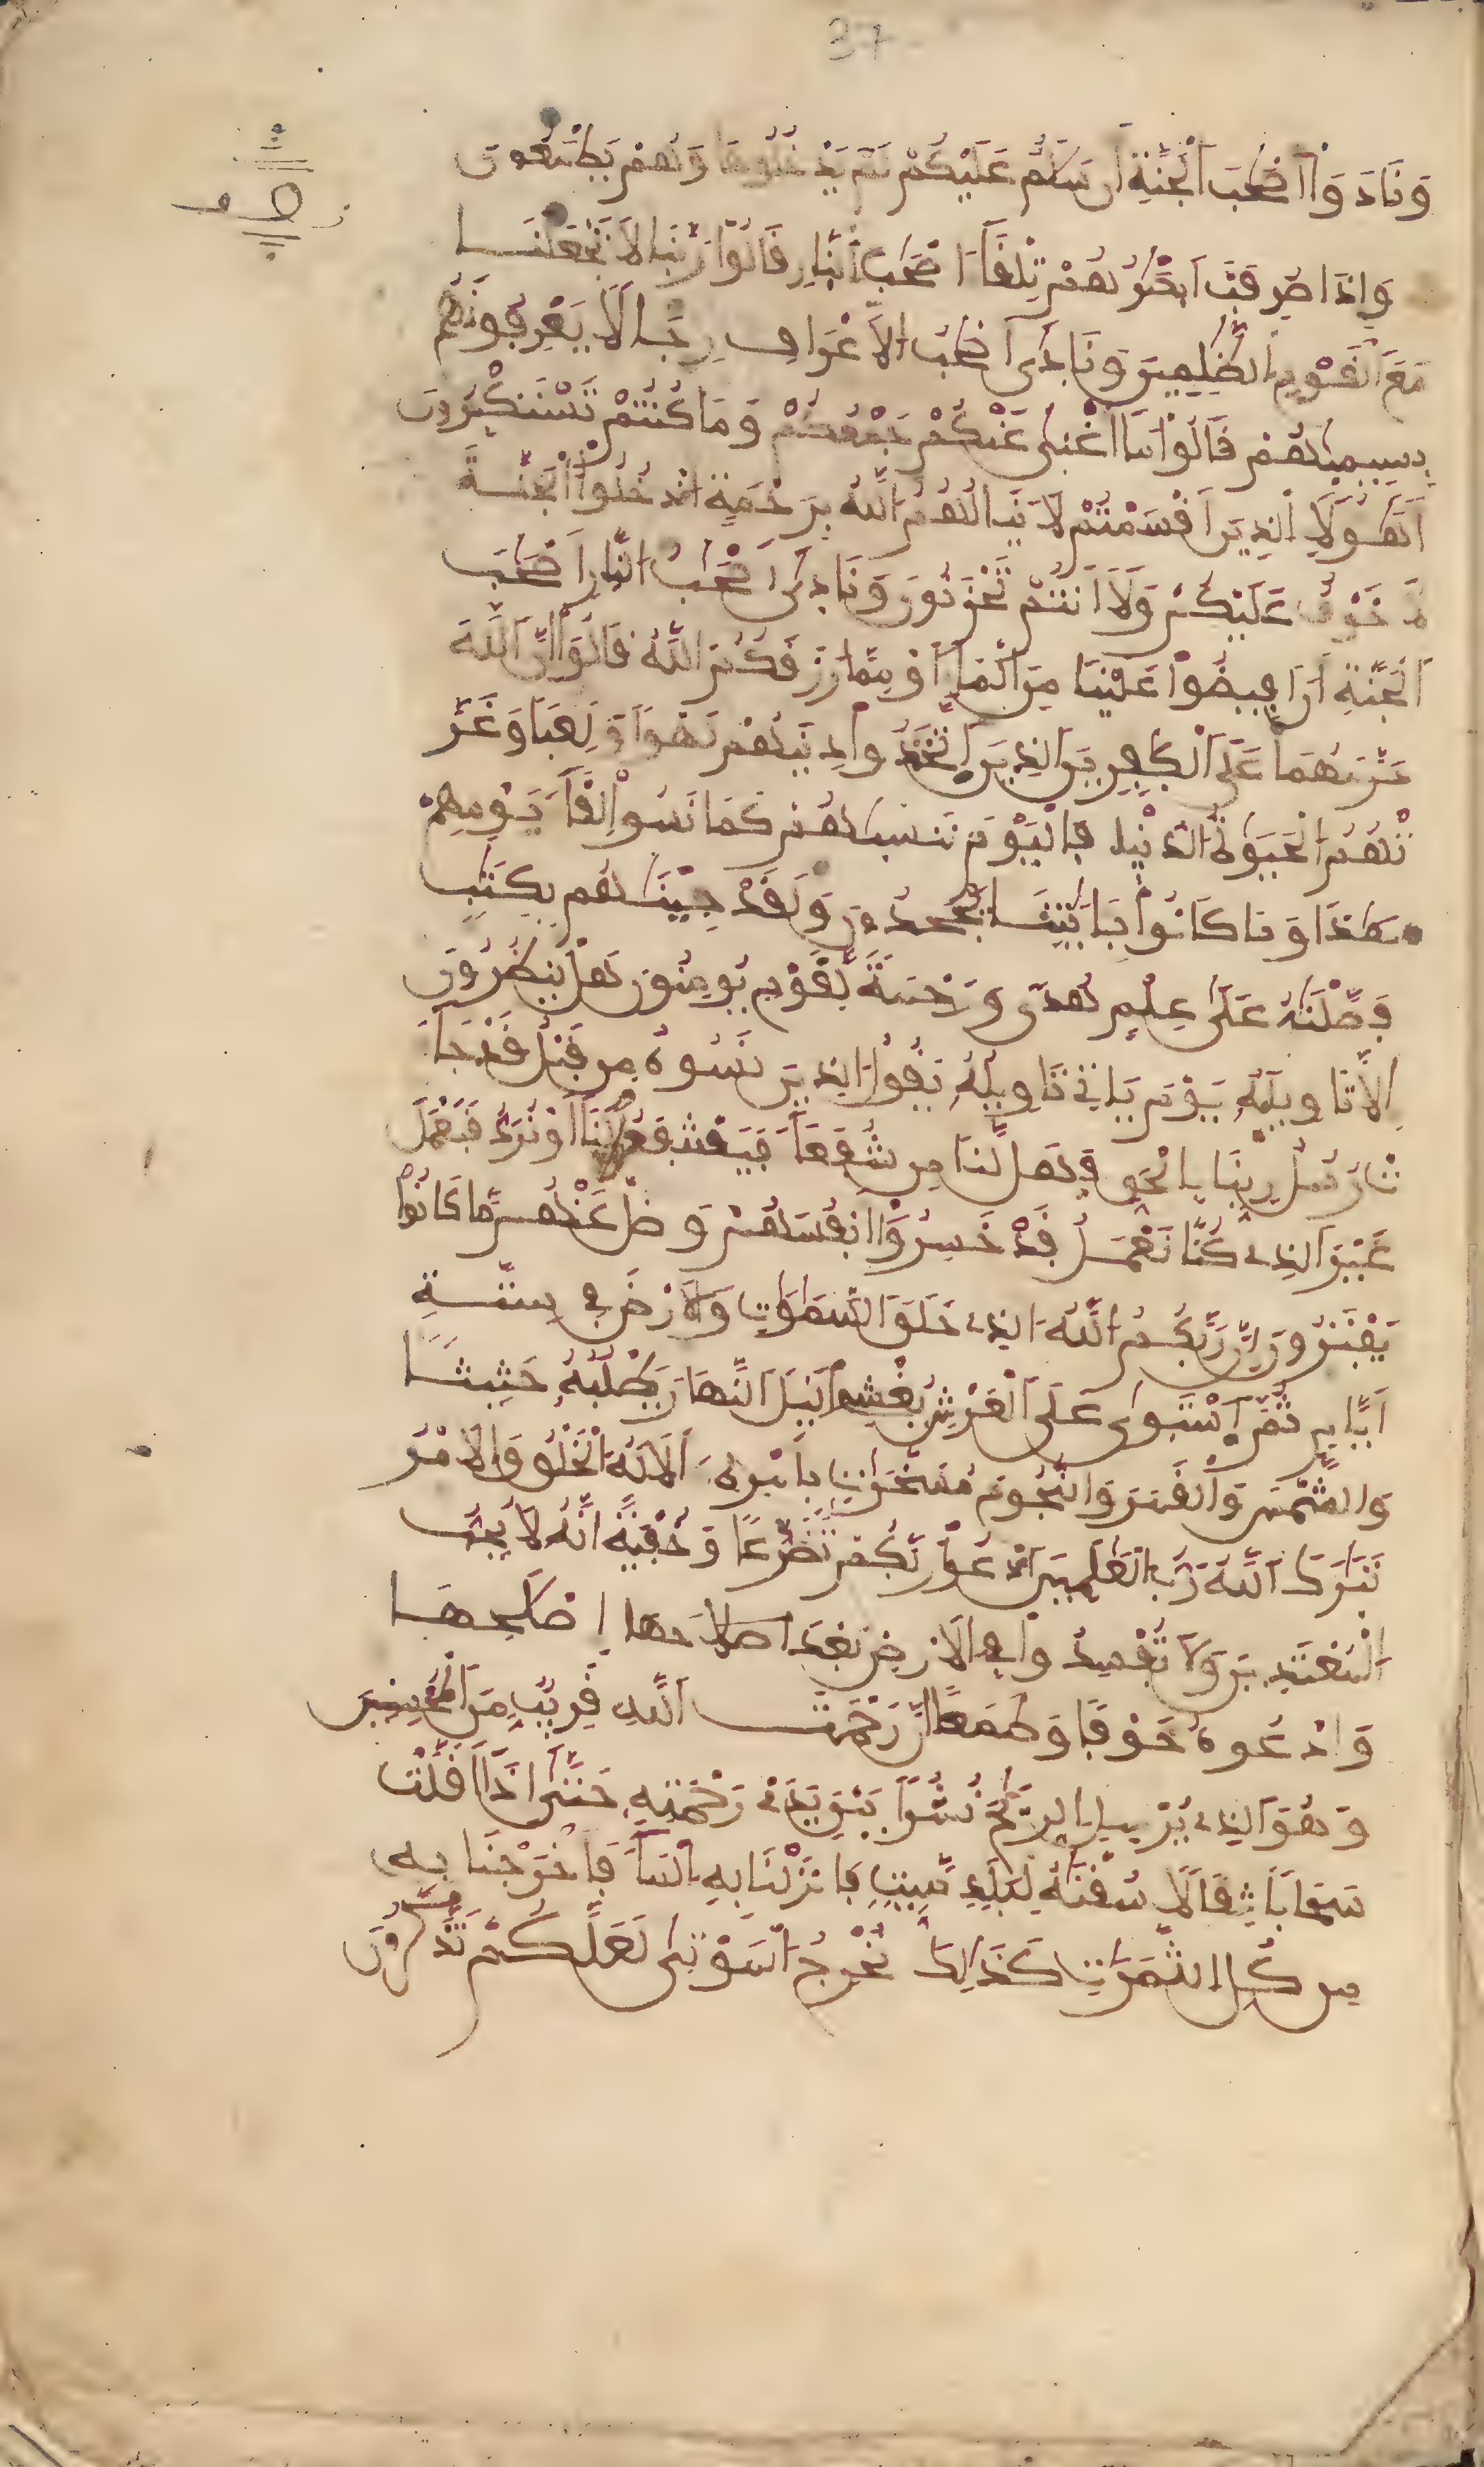 37
وَنَادَوَاْ اَصْحَٰبَ اَلْجَنَّةِ أَن سَلَٰمٌ عَلَيْكُمْ لَمْ يَدْخُلُوهَا وَهُمْ يَطْمَعُونَ
وَإِذَا صُرِفَتَ اَبْصَٰرُهُمْ تِلْقَآءَ اصْحَٰبِ اَلنّ۪ارِ قَالُواْ رَبَّنَا لَا تَجْعَلْنَا
مَعَ اَلْقَوْمِ اِلظَّٰلِمِينَ وَنَاد۪يٰٓ أَصْحَٰبُ اُلَاعْرَافِ رِجَالًا يَعْرِفُونَهُم
بِسِيم۪يٰهُمْ قَالُواْ مَآ أَغْن۪يٰ عَنكُمْ جَمْعُكُمْ وَمَا كُنتُمْ تَسْتَكْبِرُونَ
أَهَٰٓؤُلَآءِ اِلذِينَ أَقْسَمْتُمْ لَا يَنَالُهُمُ اُللَّهُ بِرَحْمَةٍ اُدْخُلُواْ اُلْجَنَّةَ
لَا خَوْفٌ عَلَيْكُمْ وَلَآ أَنتُمْ تَحْزَنُونَ وَنَاد۪يٰٓ أَصْحَٰبُ اُلنّ۪ارِ أَصْحَٰبَ
اَلْجَنَّةِ أَنَ اَفِيضُواْ عَلَيْنَا مِنَ اَلْمَآءِ أَوْ مِمَّا رَزَقَكُمُ اُللَّهُ قَالُوٓاْ إِنَّ اَللَّهَ
حَرَّمَهُمَا عَلَى اَلْكٰ۪فِرِينَ اَلذِينَ اَتَّخَذُواْ دِينَهُمْ لَهْواً وَلَعِباً وَغَرَّ
تْهُمُ اُلْحَيَوٰةُ اُلدُّنْي۪ا فَالْيَوْمَ نَنس۪يٰهُمْ كَمَا نَسُواْ لِقَآءَ يَوْمِهِمْ
هَٰذَا وَمَا كَانُواْ بِـَٔايَٰتِنَا يَجْحَدُونَ وَلَقَدْ جِئْنَٰهُم بِكِتَٰبٍ
فَصَّلْنَٰهُ عَلَىٰ عِلْمٍ هُدىً وَرَحْمَةً لِّقَوْمٍ يُومِنُونَ هَلْ يَنظُرُونَ
إِلَّا تَاوِيلَهُۥ يَوْمَ يَاتِے تَاوِيلُهُۥ يَقُولُ اُلذِينَ نَسُوهُ مِن قَبْلُ قَدْ جَآءَ
تْ رُسُلُ رَبِّنَا بِالْحَقِّ فَهَل لَّنَا مِن شُفَعَآءَ فَيَشْفَعُواْ لَنَآ أَوْ نُرَدُّ فَنَعْمَلَ
غَيْرَ اَلذِے كُنَّا نَعْمَلُ قَدْ خَسِرُوٓاْ أَنفُسَهُمْ وَضَلَّ عَنْهُم مَّا كَانُواْ
يَفْتَرُونَ إِنَّ رَبَّكُمُ اُللَّهُ اُلذِے خَلَقَ اَلسَّمَٰوَٰتِ وَالَارْضَ فِے سِتَّةِ
أَيَّامٍ ثُمَّ اَسْتَو۪يٰ عَلَى اَلْعَرْشِ يُغْشِے اِليْلَ اَلنَّهَارَ يَطْلُبُهُۥ حَثِيثاً
وَالشَّمْسَ وَالْقَمَرَ وَالنُّجُومَ مُسَخَّرَٰتٍ بِأَمْرِهِۦٓ أَلَا لَهُ اُلْخَلْقُ وَالَامْرُ
تَبَٰرَكَ اَللَّهُ رَبُّ اُلْعَٰلَمِينَ اَدْعُواْ رَبَّكُمْ تَضَرُّعاً وَخُفْيَةً إِنَّهُ لَا يُحِبُّ
اُلْمُعْتَدِينَ وَلَا تُفْسِدُواْ فِے اِلَارْضِ بَعْدَ اصلاحها إِصْلَٰحِهَا
وَادْعُوهُ خَوْفاً وَطَمَعاً إِنَّ رَحْمَتَ اَللَّهِ قَرِيبٌ مِّنَ اَلْمُحْسِنِينَ
وَهُوَ اَلذِے يُرْسِلُ اُلرِّيَٰحَ نُشُراً بَيْنَ يَدَےْ رَحْمَتِهِۦ حَتَّىٰٓ إِذَآ أَقَلَّتْ
سَحَاباً ثِقَالًا سُقْنَٰهُ لِبَلَدٍ مَّيِّتٍ فَأَنزَلْنَا بِهِ اِلْمَآءَ فَأَخْرَجْنَا بِهِۦ
مِن كُلِّ اِلثَّمَرَٰتِ كَذَٰلِكَ نُخْرِجُ اُلْمَوْت۪يٰ لَعَلَّكُمْ تَذَّكَّرُونَ